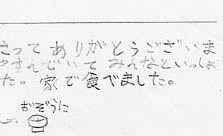 さって ありがとうございま
やすんでいて みんなといっしょ
た。家で食べました。
おぞうに